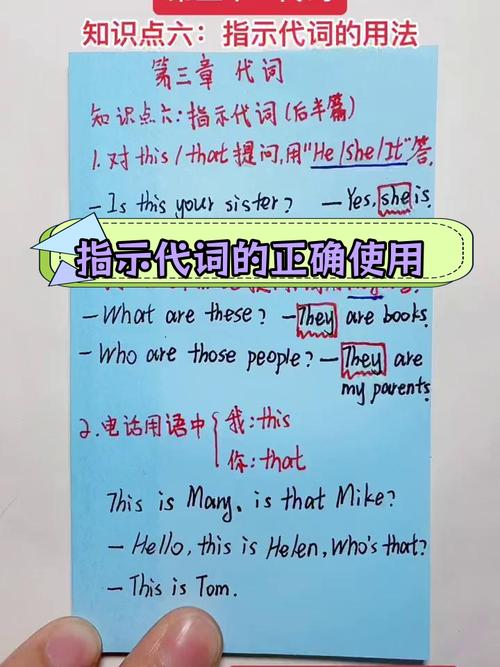 知识点六：指示代词的用法
第三章 代词
知识点六：指示代词（后半篇）
1. 对this/that提问,用"He/she/It"答.
—Is this your sister? —Yes, she is.
指示代词的正确使用
—What are these? —They are books.
—Who are those people? —They are
my parents.
2. 电话用语中 我：this
你：that
This is Mary, is that Mike?
—Hello, this is Helen, Who's that?
—This is Tom.